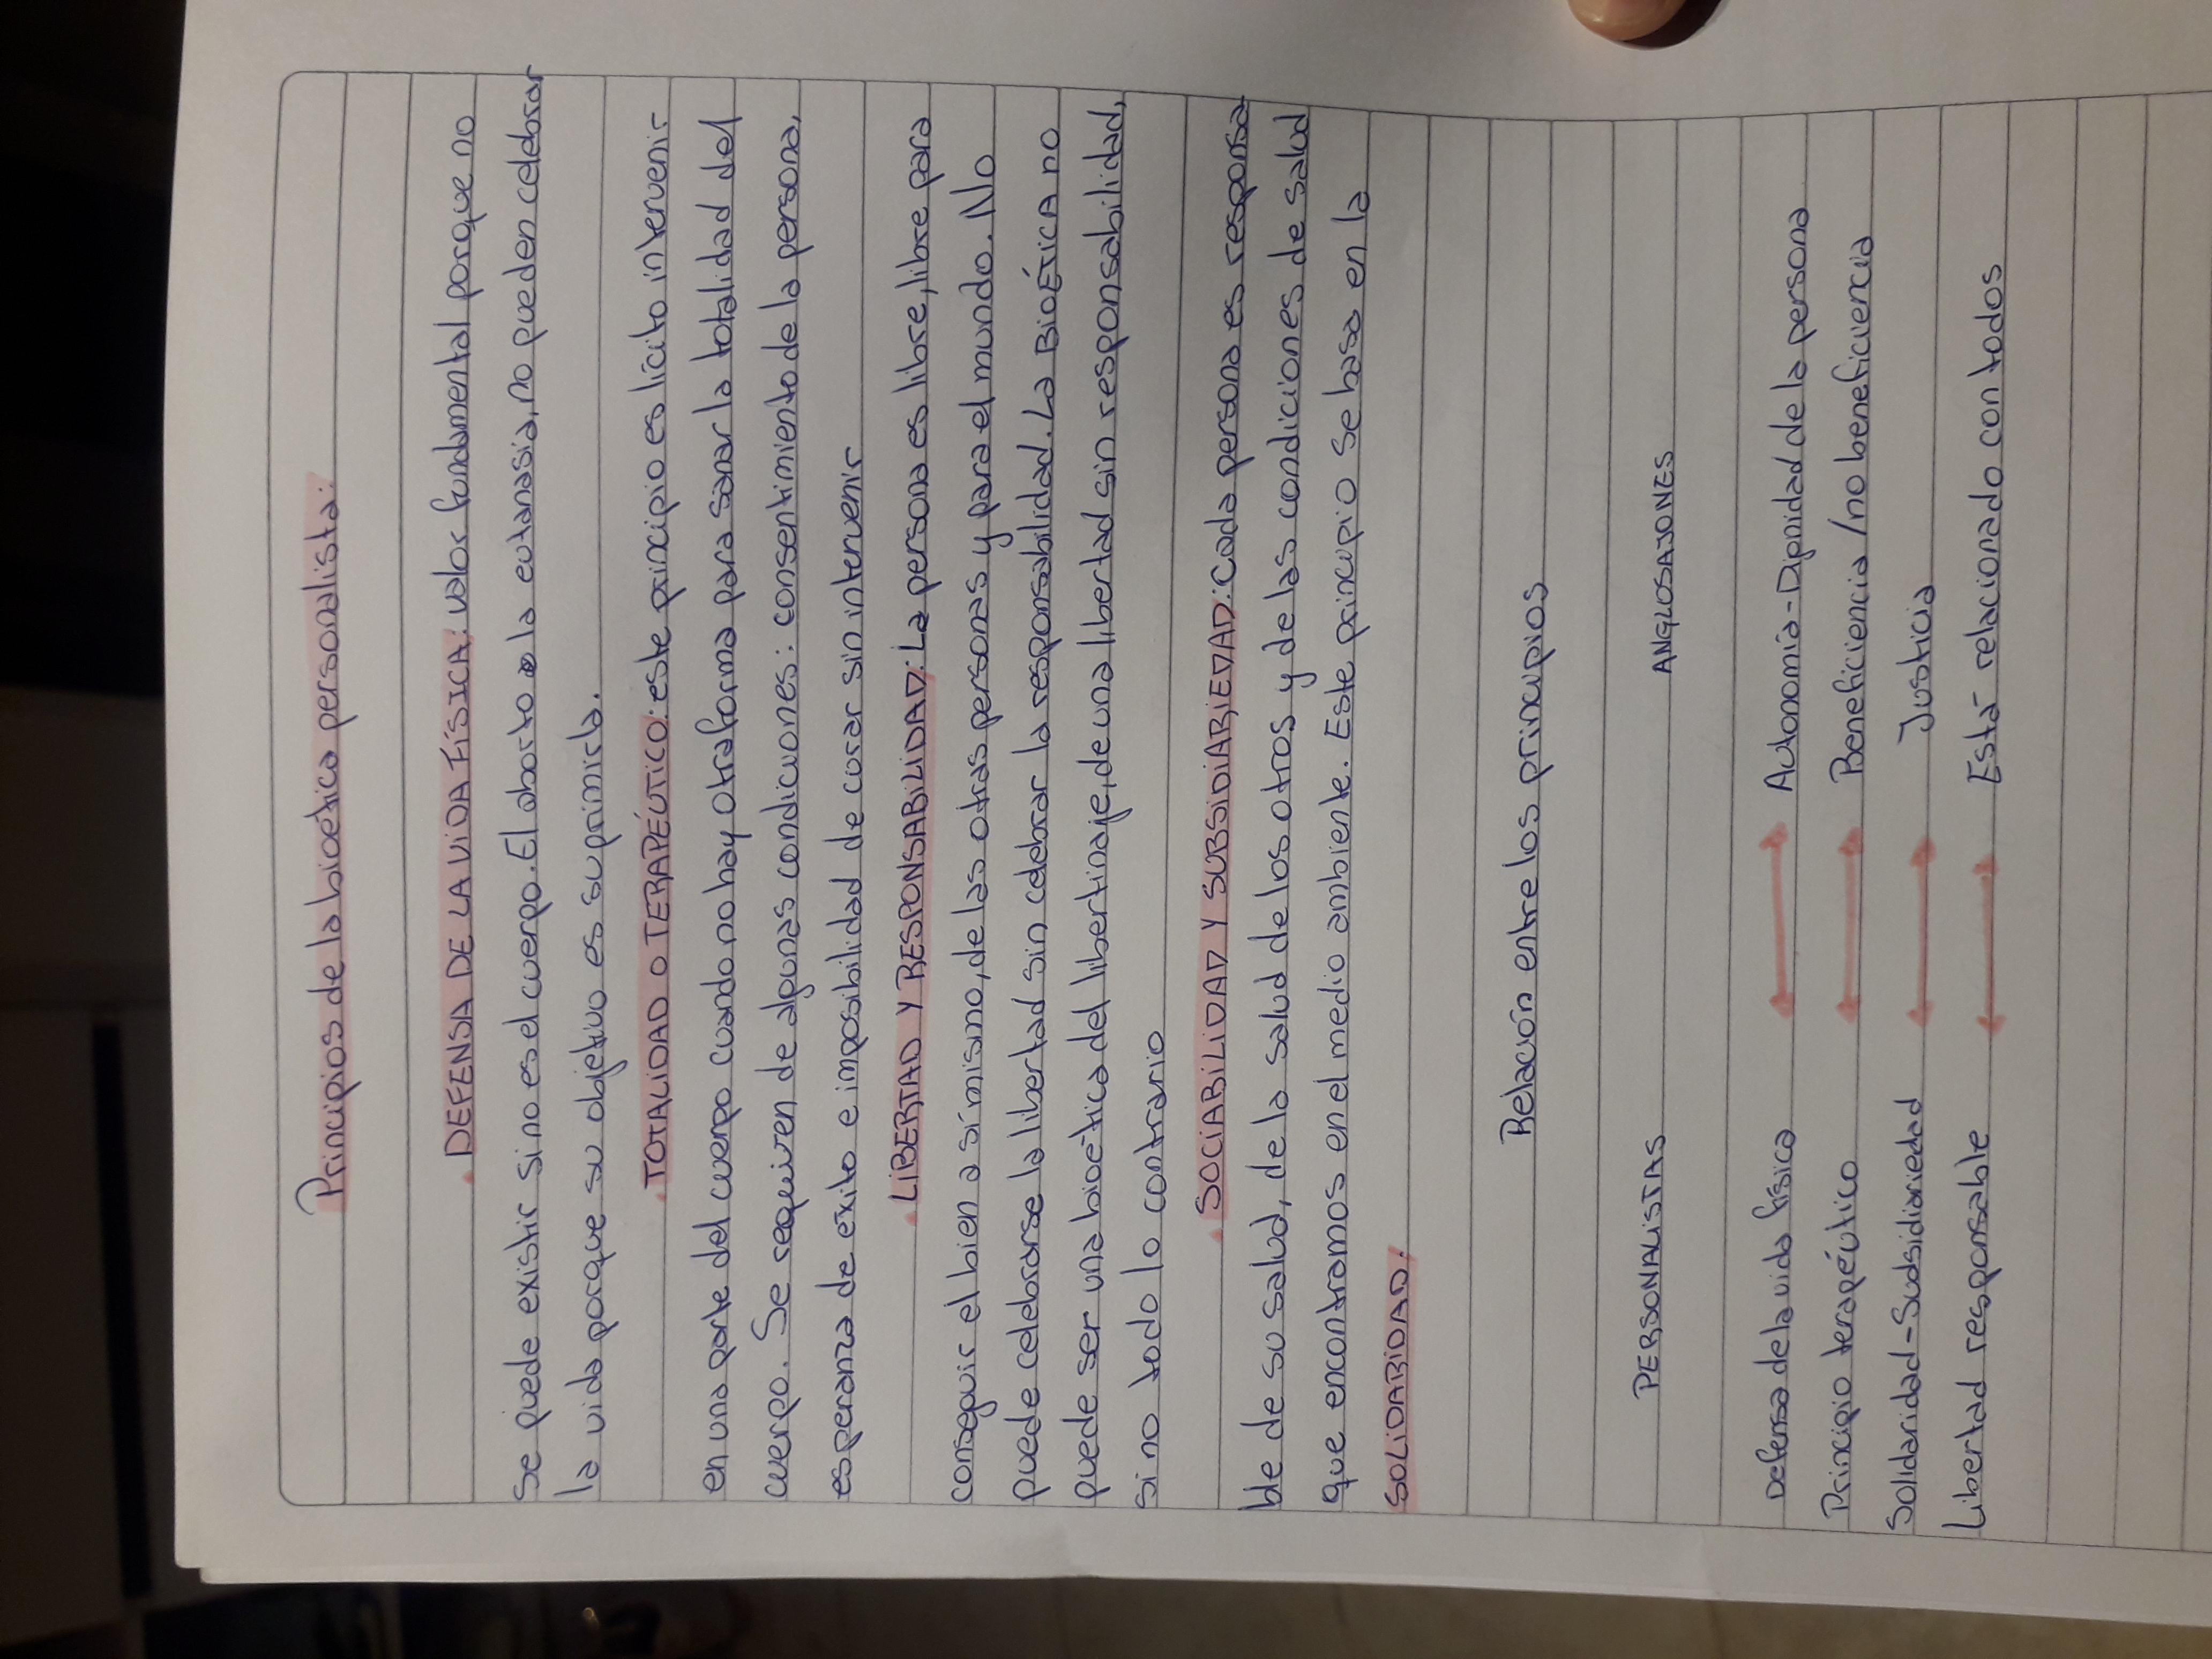 Principios de la bioética personalista:
. DEFENSA DE LA VIDA FÍSICA: valor fundamental porque no
se puede existir si no es el cuerpo. El aborto o la eutanasia, no pueden celebrar
la vida porque su objetivo es suprimirla.
. TOTALIDAD O TERAPÉUTICO: este principio es lícito intervenir
en una parte del cuerpo cuando no hay otra forma para sanar la totalidad del
cuerpo. Se requiren de algunas condiciones: consentimiento de la persona,
esperanza de exito e imposibilidad de curar sin intervenir
. LIBERTAD Y RESPONSABILIDAD: La persona es libre, libre para
conseguir el bien a sí mismo, de las otras personas y para el mundo. No
puede celebrarse la libertad sin celebrar la responsabilidad. La BIOÉTICA no
puede ser una bioética del libertinaje, de una libertad sin responsabilidad,
si no todo lo contrario
. SOCIABILIDAD Y SUBSIDIARIEDAD: Cada persona es responsa
ble de su salud, de la salud de los otros y de las condiciones de salud
que encontramos en el medio ambiente. Este principio se basa en la
SOLIDARIDAD.
Relación entre los principios
PERSONALISTAS ANGLOSAJONES
Defensa de la vida física Autonomía - Dignidad de la persona
Principio terapéutico Beneficiencia / no beneficiencia
Solidaridad - Susidiariedad Justicia
Libertad responsable Está relacionado con todos